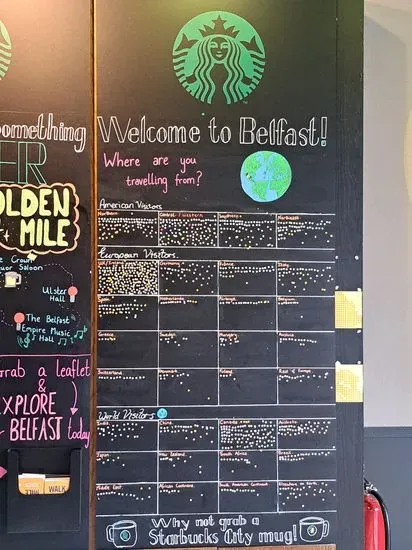 something
ER
OLDEN
MILE
Crown
Liquor Saloon
Ulster
Hall
The Belfast
Empire Music
Hall
Grab a leaflet
&
EXPLORE
BELFAST today
WALK
Welcome to Belfast!
Where are you
travelling from?
American Visitors
Northern
Central / Western
Southern
Northeast
European Visitors
Germany
France
Italy
Spain
Netherlands
Portugal
Belgium
Greece
Sweden
Hungary
Austria
Switzerland
Denmark
Poland
Rest of Europe
World Visitors
India
China
Canada
Australia
Japan
New Zealand
South Africa
Brazil
Middle East
African Continent
South American Continent
Elsewhere on Earth
Why not grab a
Starbucks City mug!